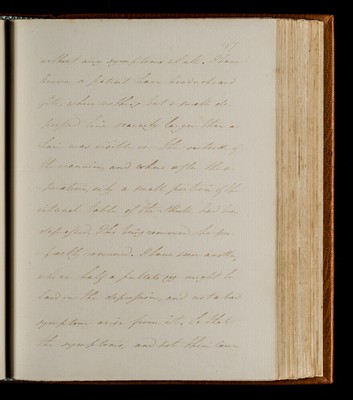 47
without any symptoms at all. I have
known a patient have headache and
fits, where nothing but a small de-
pressed line scarcely larger than a
hair was visible on the outside of
the cranium, and when after the o-
peration, only a small portion of the
internal table of the skull had been
depressed. This being removed, he per-
fectly recovered. I have seen another,
where half a pullets egg might be
laid in the depression, and not a bad
symptom arise from it. So that
the symptoms, and not the